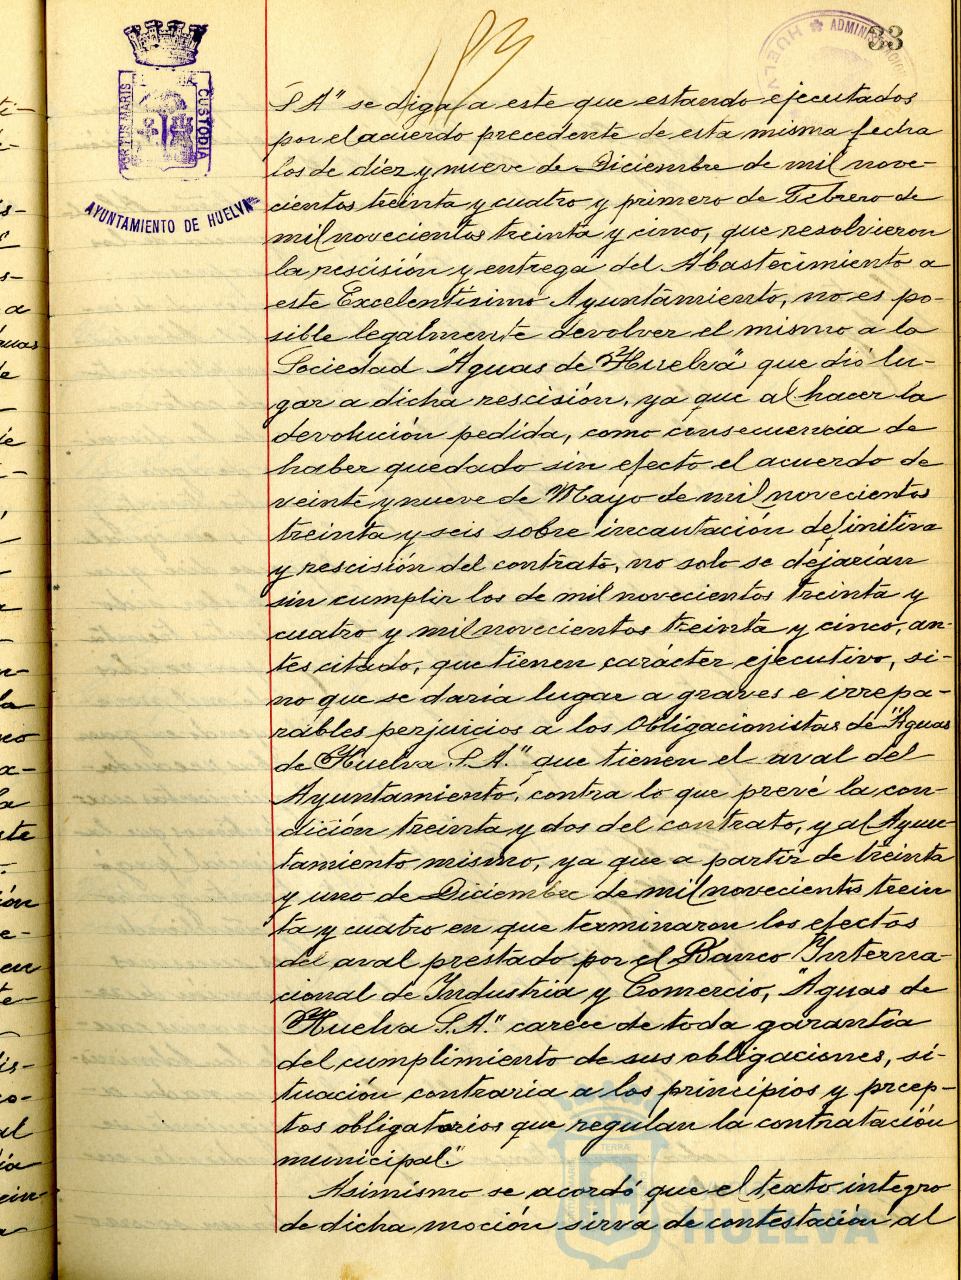 33
ADMINIS
HUELVA
PORTUS MARIS
CUSTODIA
AYUNTAMIENTO DE HUELVA
S.A" se diga a este que estando ejecutados
por el acuerdo precedente de esta misma fecha
los de diez y nueve de Diciembre de mil nove-
cientos treinta y cuatro y primero de Febrero de
mil novecientos treinta y cinco, que resolvieron
la rescisión y entrega del Abastecimiento a
este Excelentísimo Ayuntamiento, no es po-
sible legalmente devolver el mismo a la
Sociedad "Aguas de Huelva" que dió lu-
gar a dicha rescisión, ya que al hacer la
devolución pedida, como consecuencia de
haber quedado sin efecto el acuerdo de
veinte y nueve de Mayo de mil novecientos
treinta y seis sobre incautación definitiva
y rescisión del contrato, no solo se dejarían
sin cumplir los de mil novecientos treinta y
cuatro y mil novecientos treinta y cinco, an-
tes citado, que tienen carácter ejecutivo, si-
no que se daría lugar a graves e irrepa-
rables perjuicios a los Obligacionistas de "Aguas
de Huelva S.A." que tienen el aval del
Ayuntamiento, contra lo que prevé la con-
dición treinta y dos del contrato, y al Ayun-
tamiento mismo, ya que a partir de treinta
y uno de Diciembre de mil novecientos trein
ta y cuatro en que terminaron los efectos
del aval prestado por el Banco Interna-
cional de Industria y Comercio, "Aguas de
Huelva S.A." carece de toda garantía
del cumplimiento de sus obligaciones, si-
tuación contraria a los principios y precep-
tos obligatorios que regulan la contratación
municipal."
Asimismo se acordó que el texto integro
de dicha moción sirva de contestación al
HUELVA